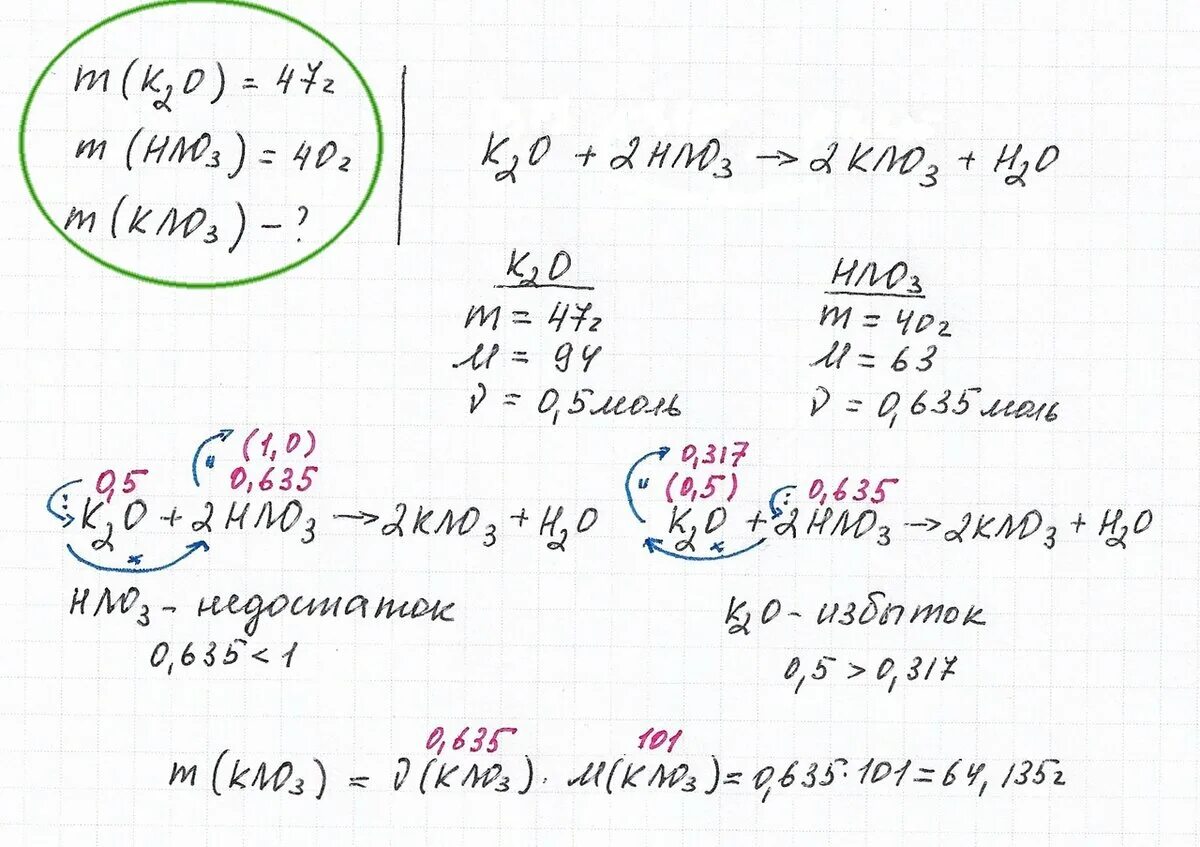 m(K₂O) = 47г
m(HNO₃) = 40г
m(KNO₃) – ?
K₂O + 2HNO₃ → 2KNO₃ + H₂O
K₂O
m = 47г
M = 94
ν = 0,5моль
HNO₃
m = 40г
M = 63
ν = 0,635моль
(1,0)
0,5 0,635
: K₂O + 2HNO₃ → 2KNO₃ + H₂O
×
HNO₃ – недостаток
0,635 < 1
0,317
(0,5) : 0,635
K₂O + 2HNO₃ → 2KNO₃ + H₂O
×
K₂O – избыток
0,5 > 0,317
0,635 101
m(KNO₃) = ν(KNO₃) · M(KNO₃) = 0,635·101 = 64,135г